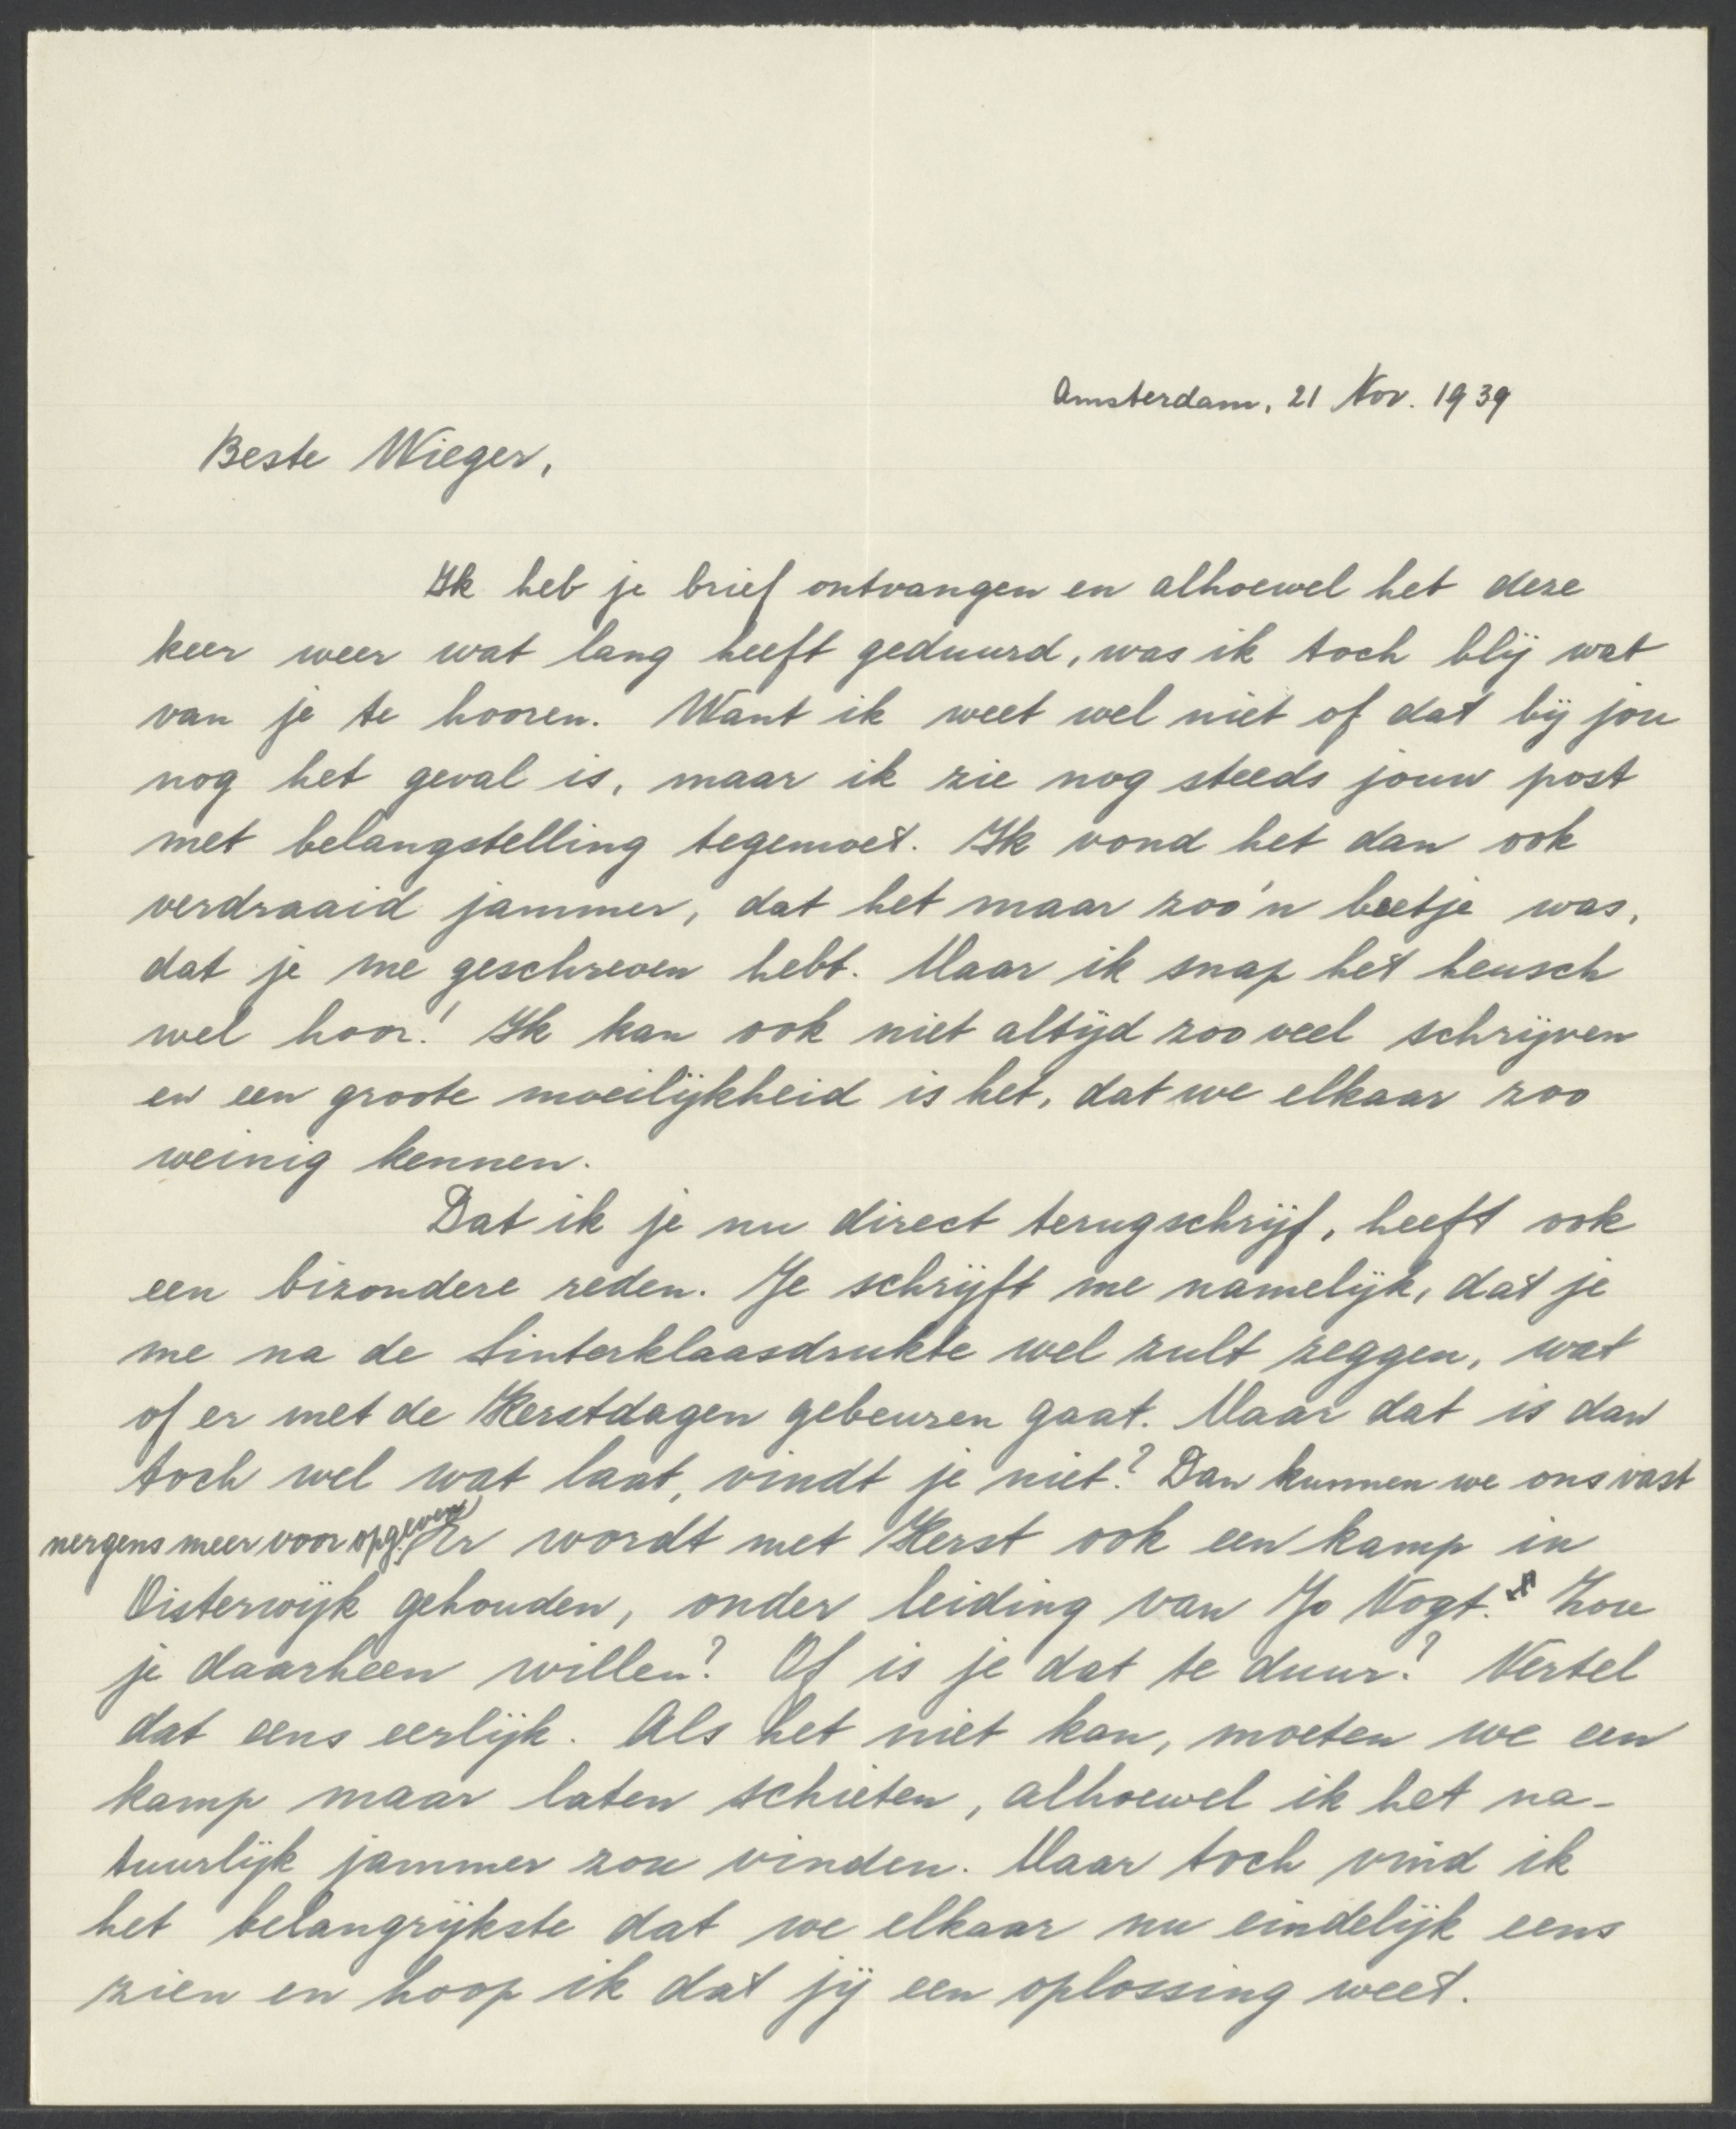 Amsterdam, 21 Nov. 1939
Beste Wieger,
Ik heb je brief ontvangen en alhoewel het deze
keer weer wat lang heeft geduurd, was ik toch blij wat
van je te hooren. Want ik weet wel niet of dat bij jou
nog het geval is, maar ik zie nog steeds jouw post
met belangstelling tegemoet. Ik vond het dan ook
verdraaid jammer, dat het maar zoo'n beetje was,
dat je me geschreven hebt. Maar ik snap het heusch
wel hoor! Ik kan ook niet altijd zoo veel schrijven
en een groote moeilijkheid is het, dat we elkaar zoo
weinig kennen.
Dat ik je nu direct terugschrijf, heeft ook
een bizondere reden. Je schrijft me namelijk, dat je
me na de Sinterklaasdrukte wel zult zeggen, wat
of er met de Kerstdagen gebeuren gaat. Maar dat is dan
toch wel wat laat, vindt je niet? Dan kunnen we ons vast
nergens meer voor opgeven. Er wordt met Kerst ook een kamp in
Oisterwijk gehouden, onder leiding van Jo Vogt. Zou
je daarheen willen? Of is je dat te duur? Vertel
dat eens eerlijk. Als het niet kan, moeten we een
kamp maar laten schieten, alhoewel ik het na-
tuurlijk jammer zou vinden. Maar toch vind ik
het belangrijkste dat we elkaar nu eindelijk eens
zien en hoop ik dat jij een oplossing weet.